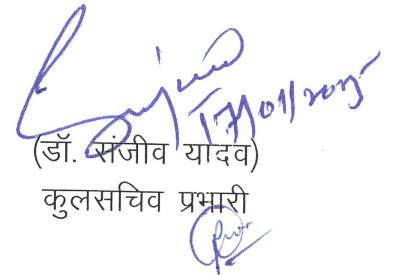 17/01/2025
(डॉ. संजीव यादव)
कुलसचिव प्रभारी